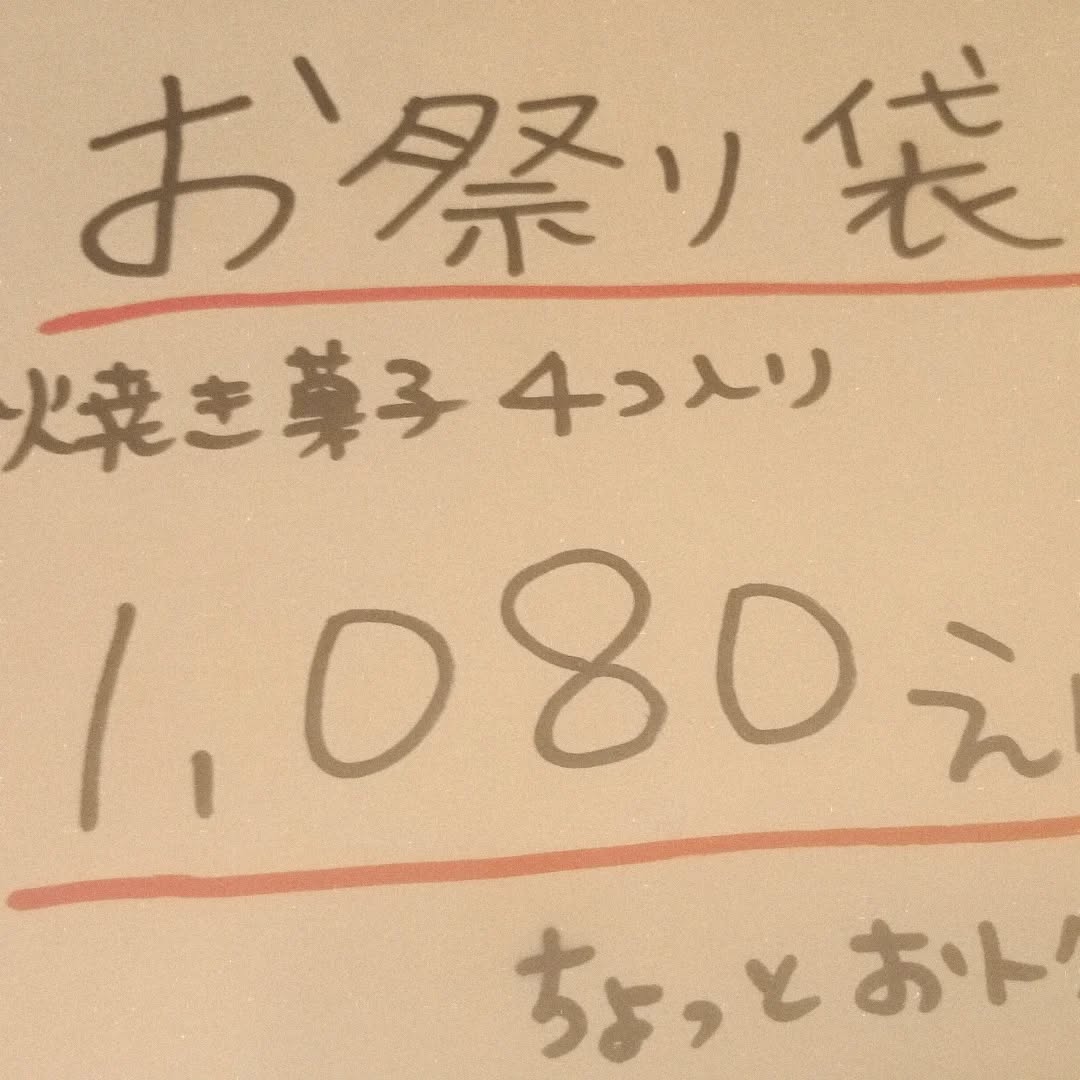 お祭り袋
焼き菓子 4つ入り
1,080え
ちょっとおト